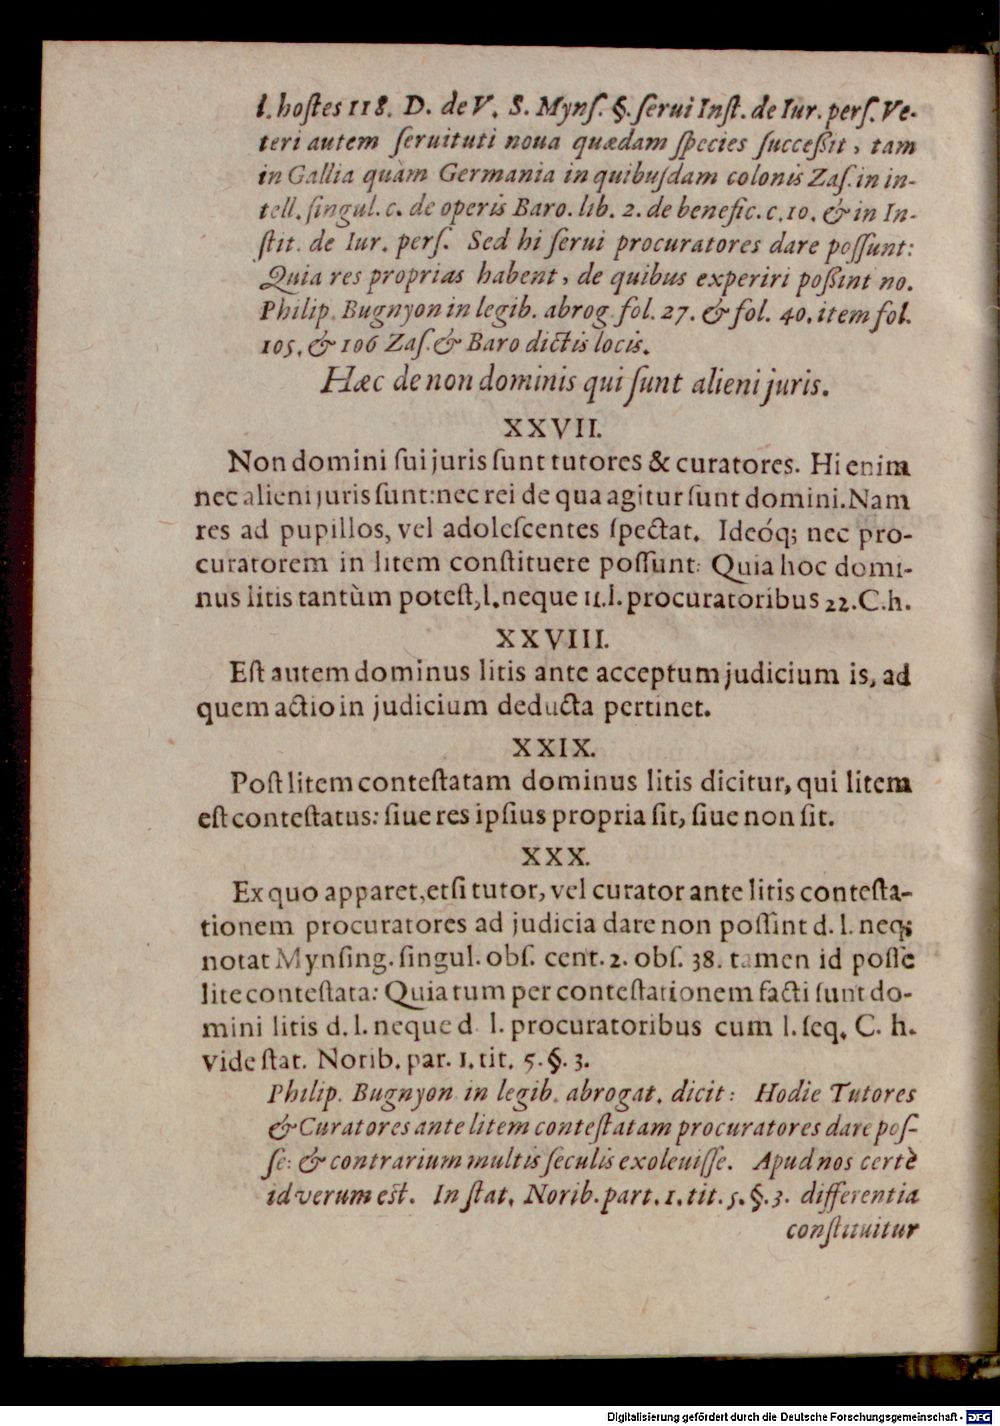 l. hoſtes 118. D. de V. S. Mynſ. §. ſerui Inſt. de Iur. perſ. Ve-
teri autem ſeruituti noua quædam ſpecies ſucceßit, tam
in Gallia quàm Germania in quibuſdam colonis Zaſ. in in-
tell. ſingul. c. de operis Baro. lib. 2. de benefic. c. 10. & in In-
ſtit. de Iur. perſ. Sed hi ſerui procuratores dare poſſunt:
Quia res proprias habent, de quibus experiri poßint no.
Philip. Bugnyon in legib. abrog. fol. 27. & fol. 40. item fol.
105. & 106 Zaſ. & Baro dictis locis.
Hæc de non dominis qui ſunt alieni juris.
XXVII.
Non domini ſui juris ſunt tutores & curatores. Hi enim
nec alieni juris ſunt: nec rei de qua agitur ſunt domini. Nam
res ad pupillos, vel adoleſcentes ſpectat. Ideóq; nec pro-
curatorem in litem conſtituere poſſunt: Quia hoc domi-
nus litis tantùm poteſt, l. neque 11. l. procuratoribus 22. C. h.
XXVIII.
Eſt autem dominus litis ante acceptum judicium is, ad
quem actio in judicium deducta pertinet.
XXIX.
Poſt litem conteſtatam dominus litis dicitur, qui litem
eſt conteſtatus: ſiue res ipſius propria ſit, ſiue non ſit.
XXX.
Ex quo apparet, etſi tutor, vel curator ante litis conteſta-
tionem procuratores ad judicia dare non poſſint d. l. neq;
notat Mynſing. ſingul. obſ. cent. 2. obſ. 38. tamen id poſſe
lite conteſtata: Quia tum per conteſtationem facti ſunt do-
mini litis d. l. neque d. l. procuratoribus cum l. ſeq. C. h.
Vide ſtat. Norib. par. 1. tit. 5. §. 3.
Philip. Bugnyon in legib. abrogat. dicit: Hodie Tutores
& Curatores ante litem conteſtatam procuratores dare poſ-
ſe: & contrarium multis ſeculis exoleuiſſe. Apud nos certè
id verum eſt. In ſtat. Norib. part. 1. tit. 5. §. 3. differentia
conſtituitur
Digitalisierung gefördert durch die Deutsche Forschungsgemeinschaft - DFG